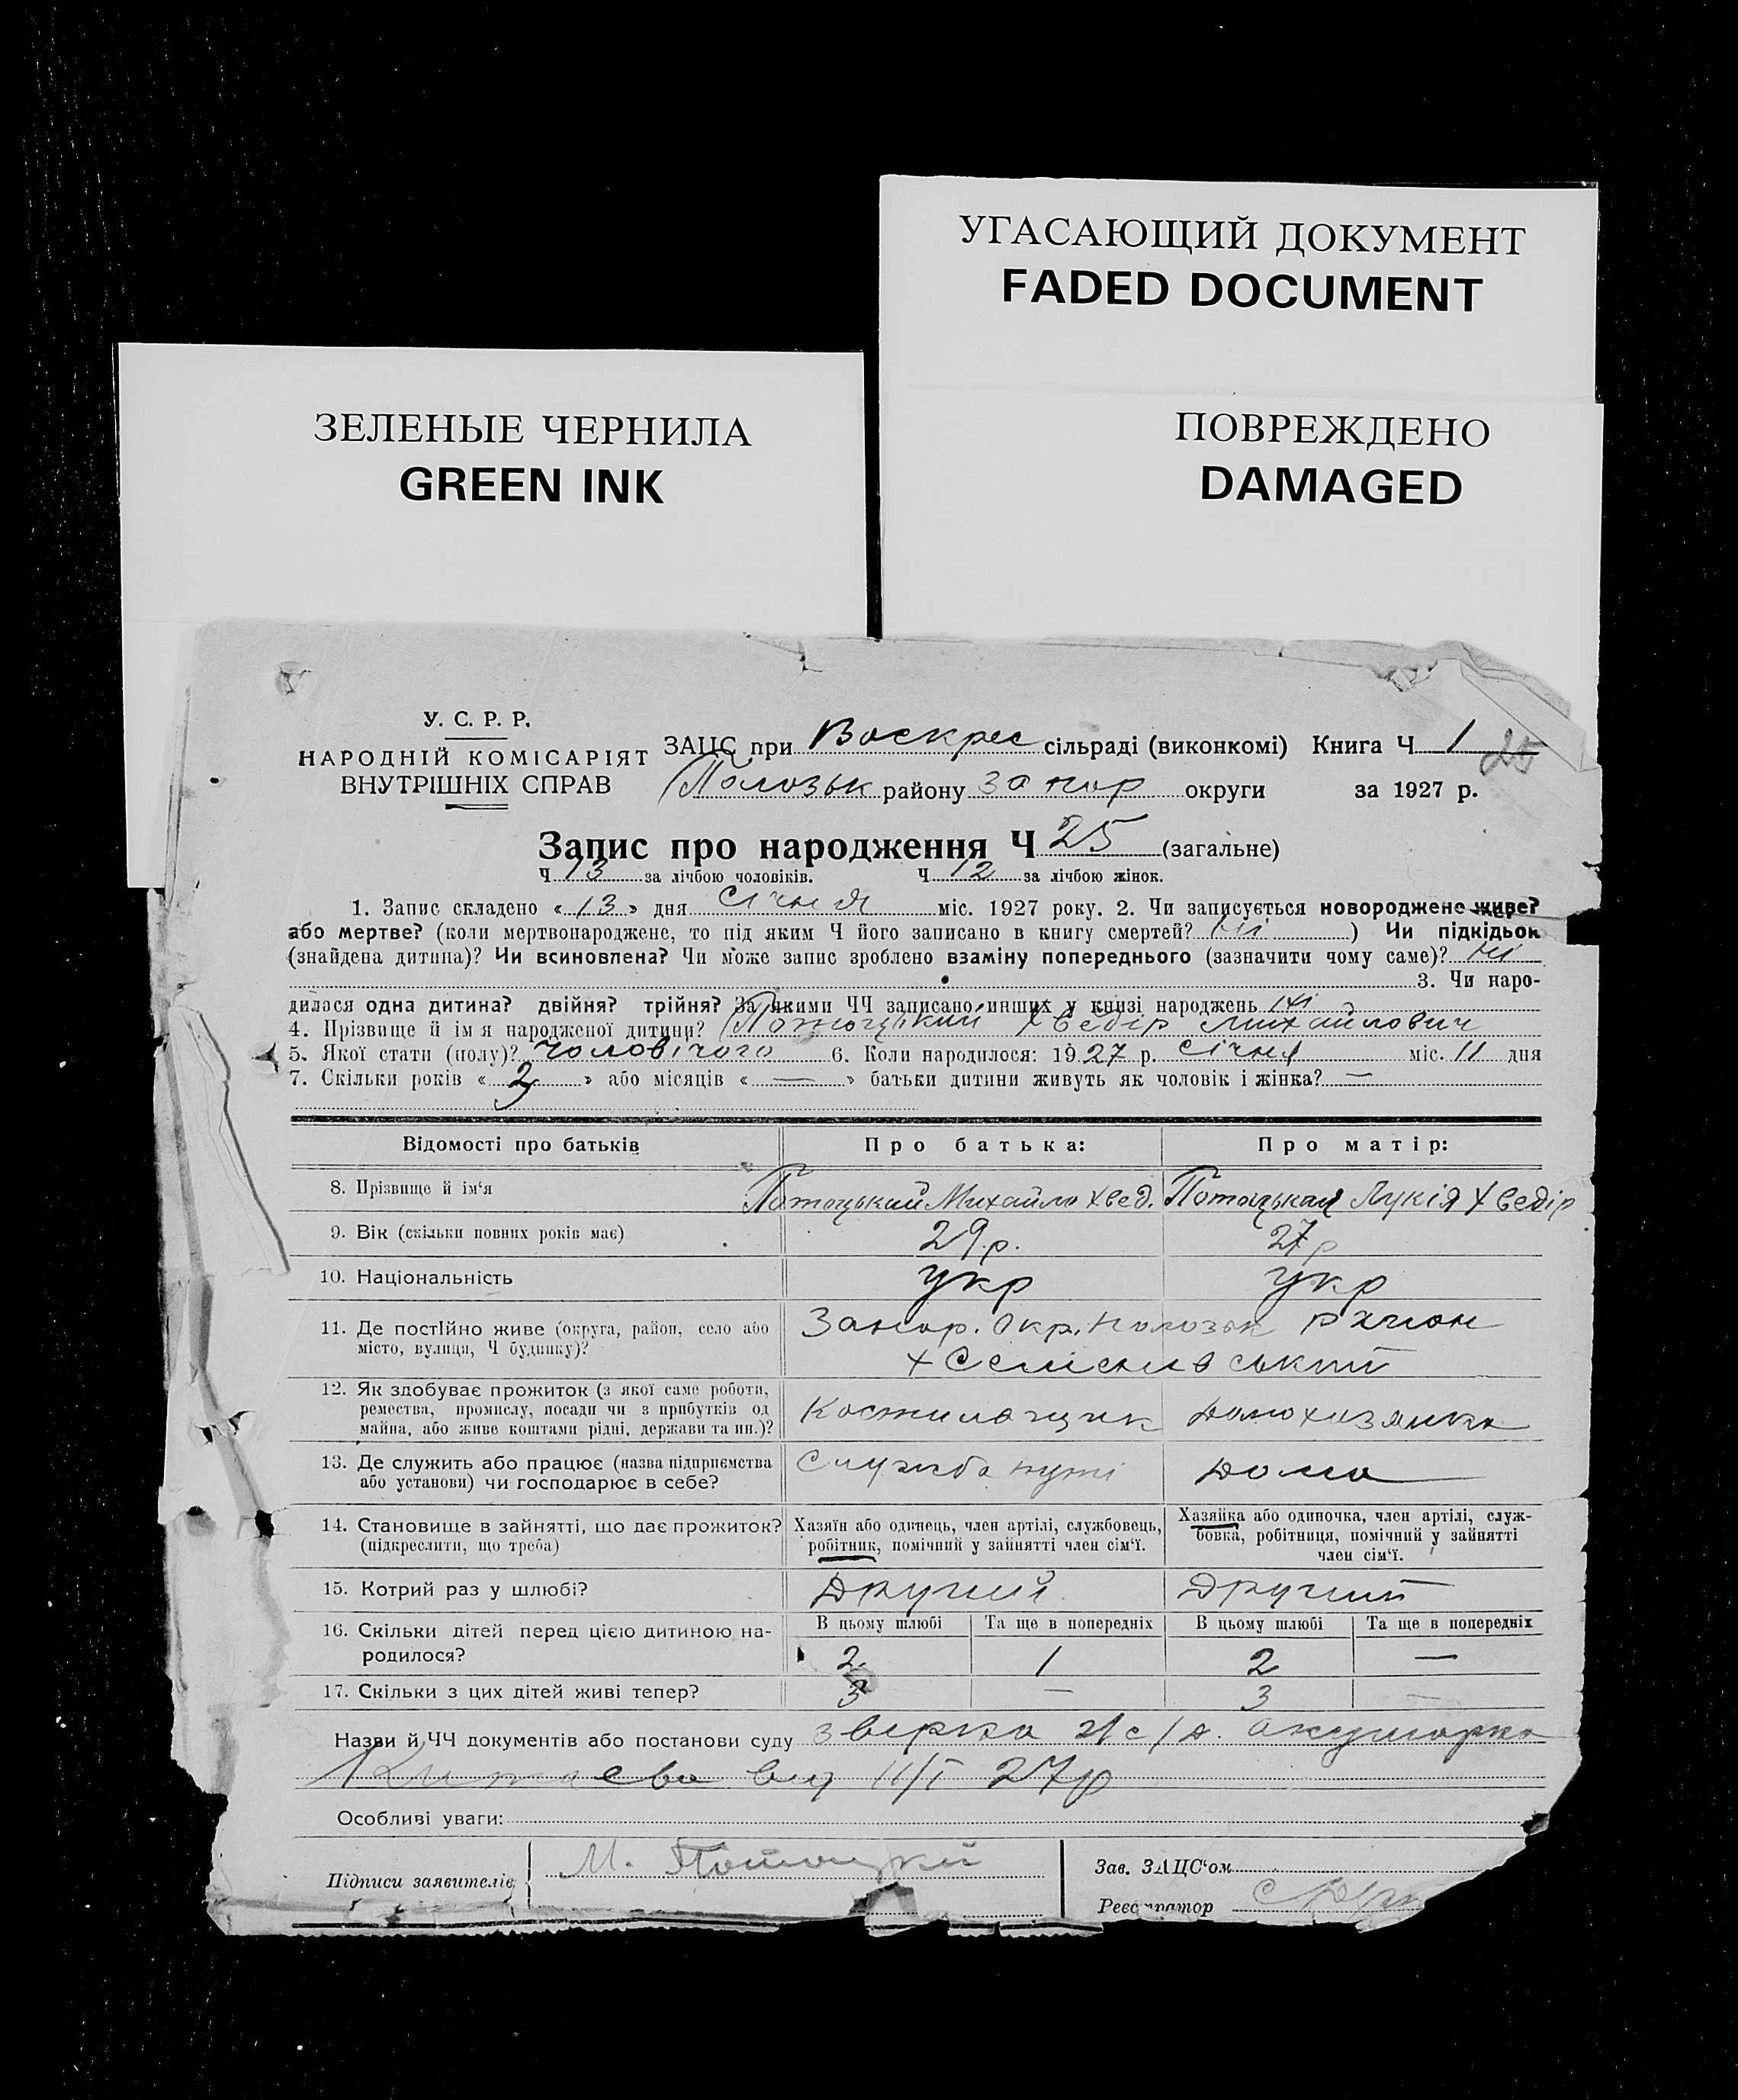 УГАСАЮЩИЙ ДОКУМЕНТ
FADED DOCUMENT
ЗЕЛЕНЫЕ ЧЕРНИЛА
GREEN INK
ПОВРЕЖДЕНО
DAMAGED
У. С. Р. Р.
НАРОДНІЙ КОМІСАРІЯТ
ВНУТРІШНІХ СПРАВ
ЗАЦС при Воскрес сільраді (виконкомі) Книга Ч 1
25
Полозьк району Запор округи за 1927 р.
Запис про народження Ч 25 (загальне)
Ч 13 за лічбою чоловіків. Ч 12 за лічбою жінок.
1. Запис складено « 13 » дня січня міс. 1927 року. 2. Чи записується новороджене живе?
або мертве? (коли мертвонароджене, то під яким Ч його записано в книгу смертей? ні ) Чи підкідьок
(знайдена дитина)? Чи всиновлена? Чи може запис зроблено взаміну попереднього (зазначити чому саме)? ні
3. Чи наро-
дилася одна дитина? двійня? трійня? За якими ЧЧ записано инших у книзі народжень ні
4. Прізвище й ім я народженої дитини? Потоцький Хведір Михайлович
5. Якої стати (полу)? чоловічого 6. Коли народилося: 1927 р. січня міс. 11 дня
7. Скільки років « 2 » або місяців « — » батьки дитини живуть як чоловік і жінка? —
Відомості про батьків Про батька: Про матір:
8. Прізвище й ім‘я Потоцький Михайло Хвед. Потоцькая Лукія Хведір
9. Вік (скільки повних років має) 29 р. 27 р
10. Національність укр укр
11. Де постійно живе (округа, район, село або Запор. Окр. Полозьк
місто, вулиця, Ч будинку)?
12. Як здобуває прожиток (з якої саме роботи,
ремества, промислу, посади чи з прибутків од
майна, або живе коштами рідні, держави та ин.)? Костильщик Домохазяйка
13. Де служить або працює (назва підприємства Служба путі Дома
або установи) чи господарює в себе?
14. Становище в зайнятті, що дає прожиток? Хазяїн або одинець, член артілі, службовець, Хазяйка або одиночка, член артілі, служ-
(підкреслити, що треба) робітник, помічний у зайнятті член сім‘ї. бовка, робітниця, помічний у зайнятті
член сім‘ї.
15. Котрий раз у шлюбі? Другий Другий
16. Скільки дітей перед цією дитиною на- В цьому шлюбі Та ще в попередніх В цьому шлюбі Та ще в попередніх
родилося? 2 1 2 —
17. Скільки з цих дітей живі тепер? 3 — 3 —
Назви й ЧЧ документів або постанови суду акушорка
від 11/I 27р
Особливі уваги:
Підписи заявителів М. Потоцкій Зав. ЗАЦС‘ом
Реєстратор